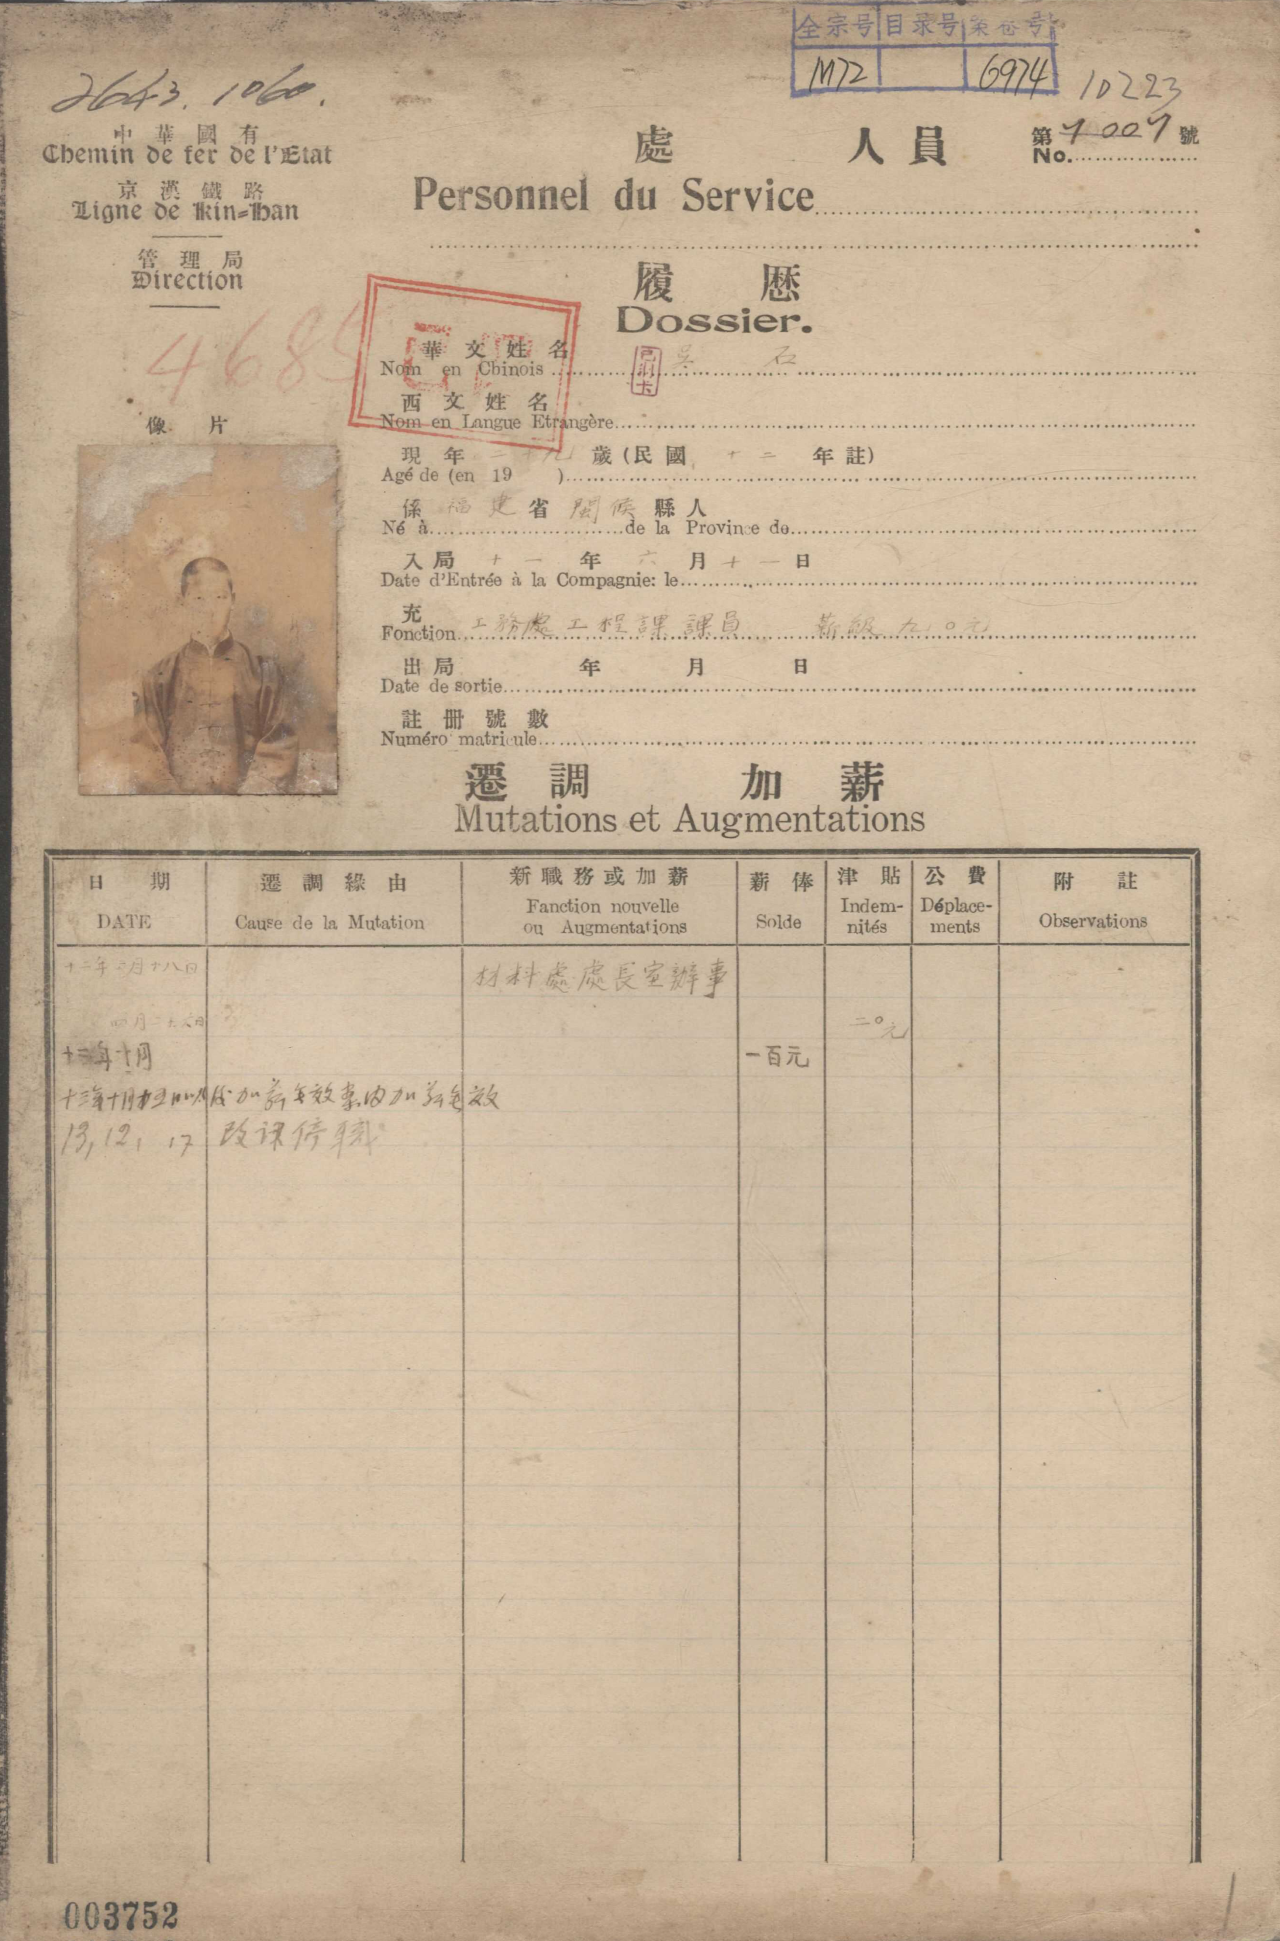 全宗号 目录号 案卷号
M72 6974
10223
2643.1060.
中華國有
Chemin de fer de l'Etat
京漢鐵路
Ligne de Kin=Han
管理局
Direction
處 人員
第7007號
No.
Personnel du Service
履歷
Dossier.
468
華文姓名 吳石
Nom en Chinois
西文姓名
Nom en Langue Etrangère
現年二十九歲(民國十二年註)
Agé de (en 19 )
係福建省閩侯縣人
Né à de la Province de
入局十一年六月十一日
Date d'Entrée à la Compagnie: le
充 工務處工程課課員 薪級九〇元
Fonction
出局 年 月 日
Date de sortie
註冊號數
Numéro matricule
像片
遷調 加薪
Mutations et Augmentations
日期 遷調緣由 新職務或加薪 薪俸 津貼 公費 附註
DATE Cause de la Mutation Fanction nouvelle ou Augmentations Solde Indem-nités Déplace-ments Observations
十二年二月十八日 材料處處長室辦事
四月二十六日 二〇元
十三年十月 一百元
十三年十月 加薪 案內加薪
13,12,17 改課停職
003752
1